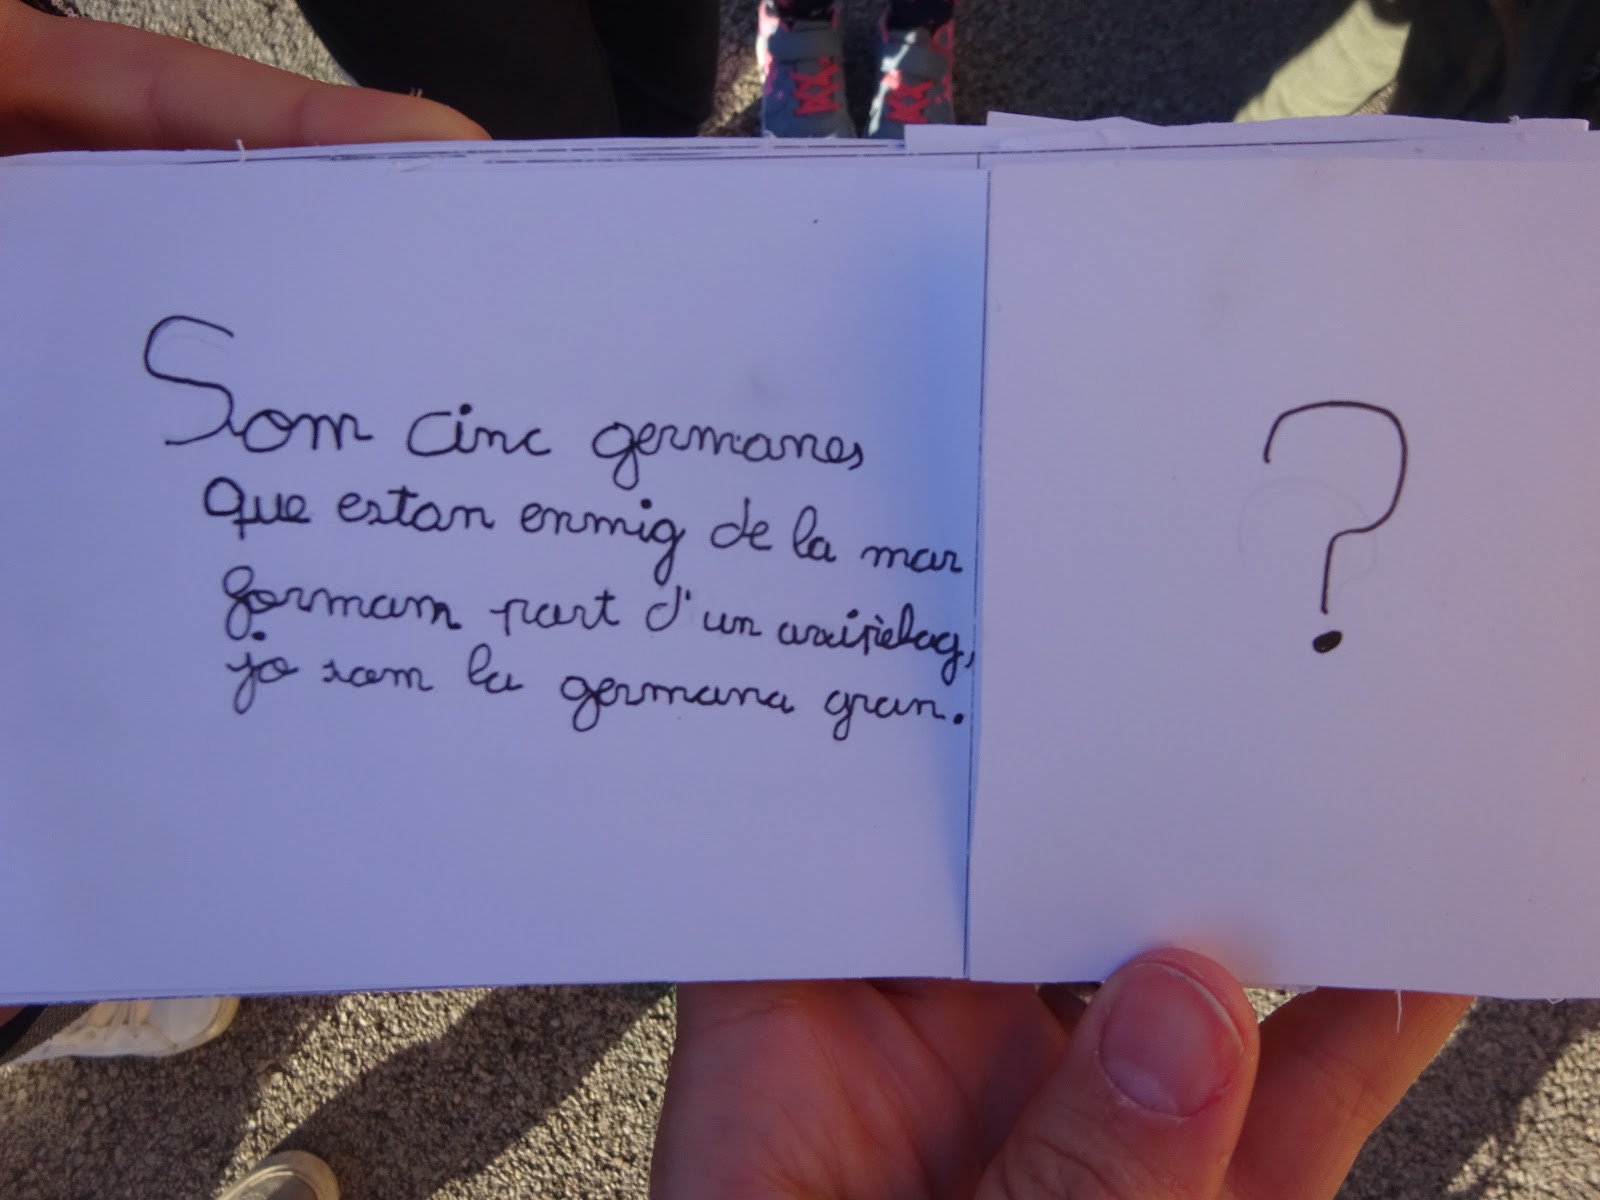 Som cinc germanes
que estan enmig de la mar
formam part d'un arxipèlag,
jo som la germana gran.
?